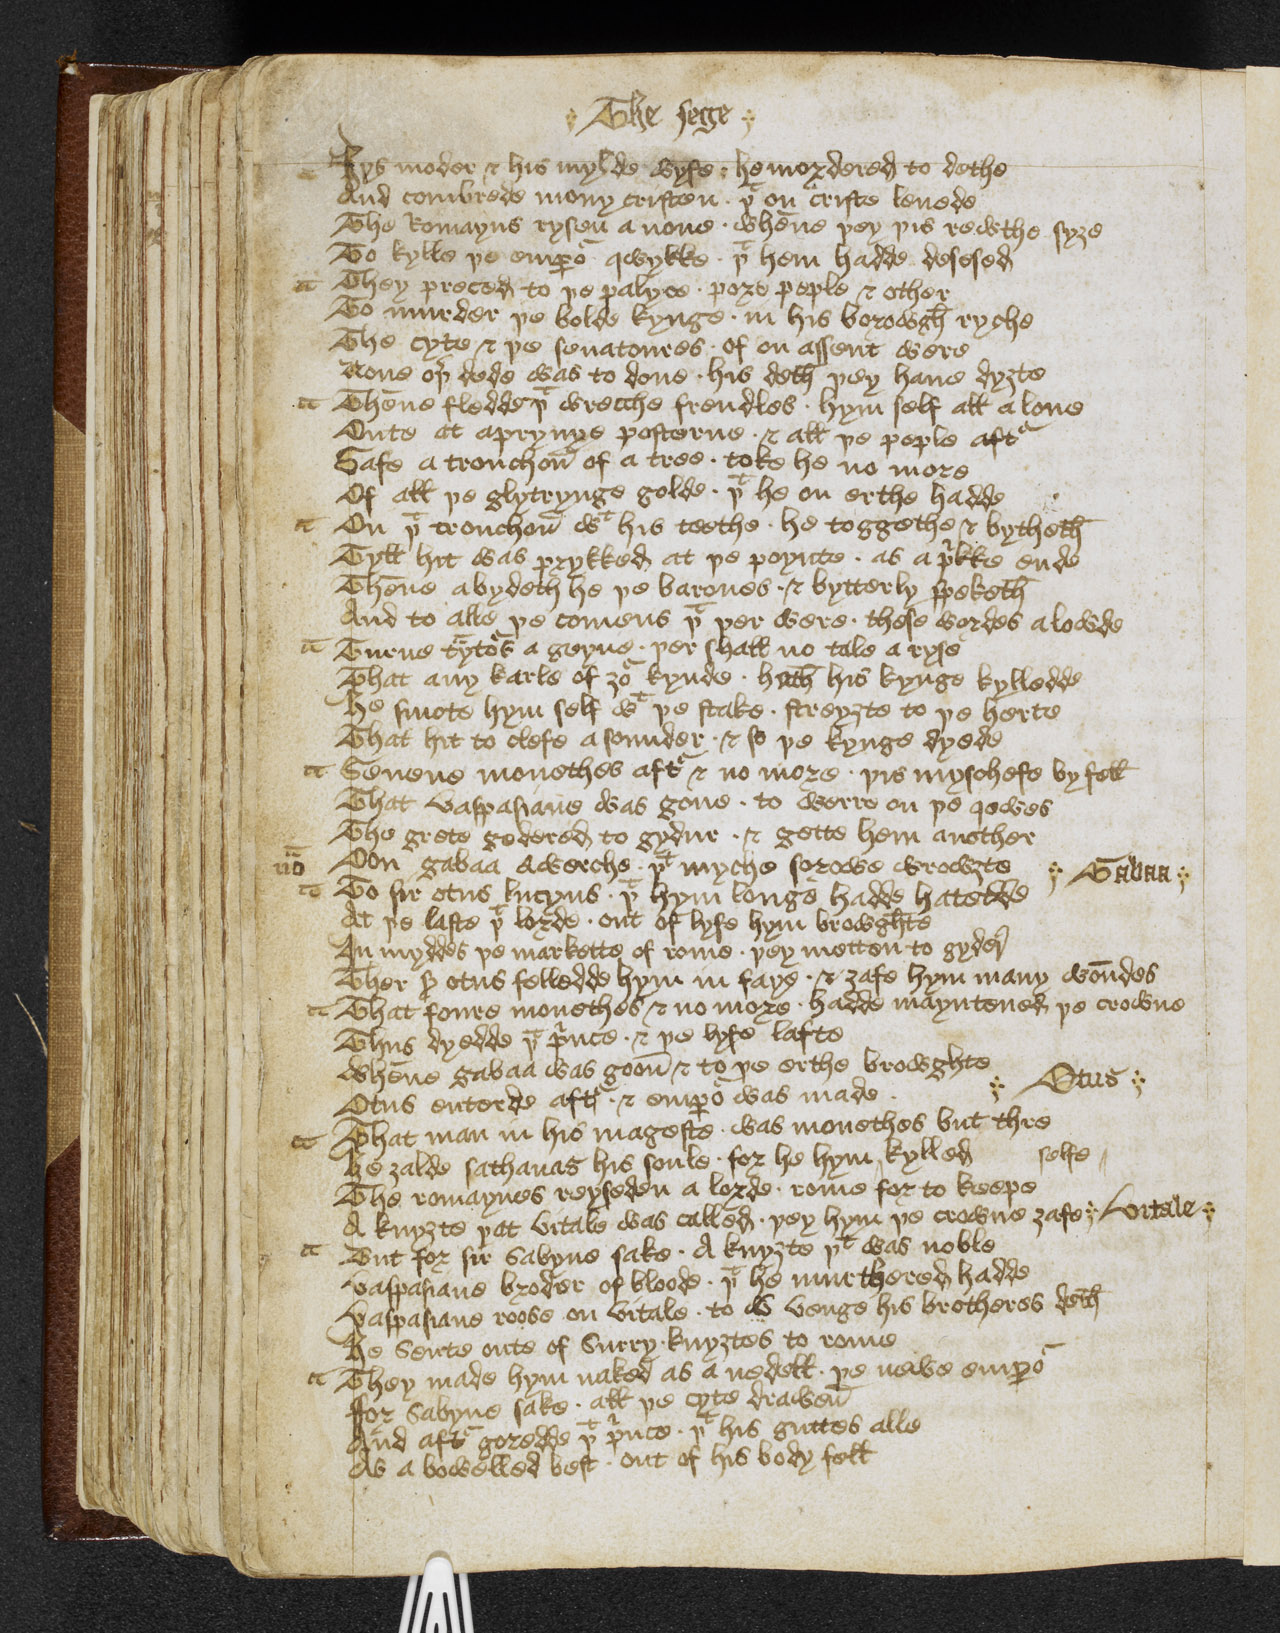 The sege
Hys moder & his mylde wyfe · he mordered to dethe
And combrede mony cristen · þͭ on criste leuede
The Romayns rysen̄ a none · whēne þey þis rewthe syȝe
To kylle þe emꝑoͬ qwykke · þͭ hem hadde desesed
They preced to þe palyce · pore peple & other
To murder þe bolde kynge · in his borowgh ryche
The cyte & þe senatoures · of on assent were
None oþ̉ dede was to done · his deth þey haue dyȝte
Thēne fledde þͭ wrecche frendles · hym self all a lone
Oute at a pryuye posterne · & all þe peple aftͬ
Safe a tronchon̄ of a tree · toke he no more
Of all þe glytrynge golde · þͭ he on erthe hadde
On þͭ tronchon̄ wͭ his teethe · he toggethe & bytheth
Tyll hit was prykked at þe poynte · as a pͥkke ende
Thēne abydeth he þe barones · & bytterly speketh
And to alle þe comens þͭ þer were · these wordes a lowde
Turne tͬytoͬs a geyne · þer shall no tale a ryse
That any karle of ȝoͬ kynde · hath his kynge kylledde
He smote hym self wͭ þe stake · streyȝte to þe herte
That hit to clefe a sonnder · & so þe kynge dyede
Seuene monethes aftͬ & no more · þis myschefe by fell
That vaspasiane was gone · to werre on þe iewes
The grete gedered to gydur · & gette hem another
nō
Oon gabaa a werche · þͭ myche sorowe wrowȝte
Gabaa
To sir otus lucyus · þͭ hym longe hadde hatedde
At þe laste þͭ lorde · out of lyfe hym browghte
In myddes þe markette of rome · þey metten to gyder̉
Ther sͥ otus felledde hym in faye · & ȝafe hym many wōndes
That foure monethes & no more · hadde mayntened þe crowne
Thus dyedde þͭ pͥnce · & þe lyfe lafte
Whēne gabaa was goon̄ & to þe erthe browghte
Otus
Otus enterde aftͬ · & emꝑoͬ was made ·
That man in his mageste · was monethes but thre
He ȝalde sathanas his soule · for he hym kylled
selfe
The romaynes reyseden a lorde · rome for to keepe
A knyȝte þat vitale was called · þey hym þe crowne ȝafe
Vitale
But for sir Sabyne sake · A knyȝte þͭ was noble
vaspasiane broder of bloode · þͭ he murthered hadde
Vaspasiane roose on vitale · to w venge his brotheres deth
He Sente oute of Surry · knyȝtes to rome
They made hym naked as a nedell · þe newe emꝑoͬ
For Sabyne sake · all þe cyte drawen̄
And aftͬ goredde þͭ pͥnce · þͭ his guttes alle
As a bowelled best · out of his body fell